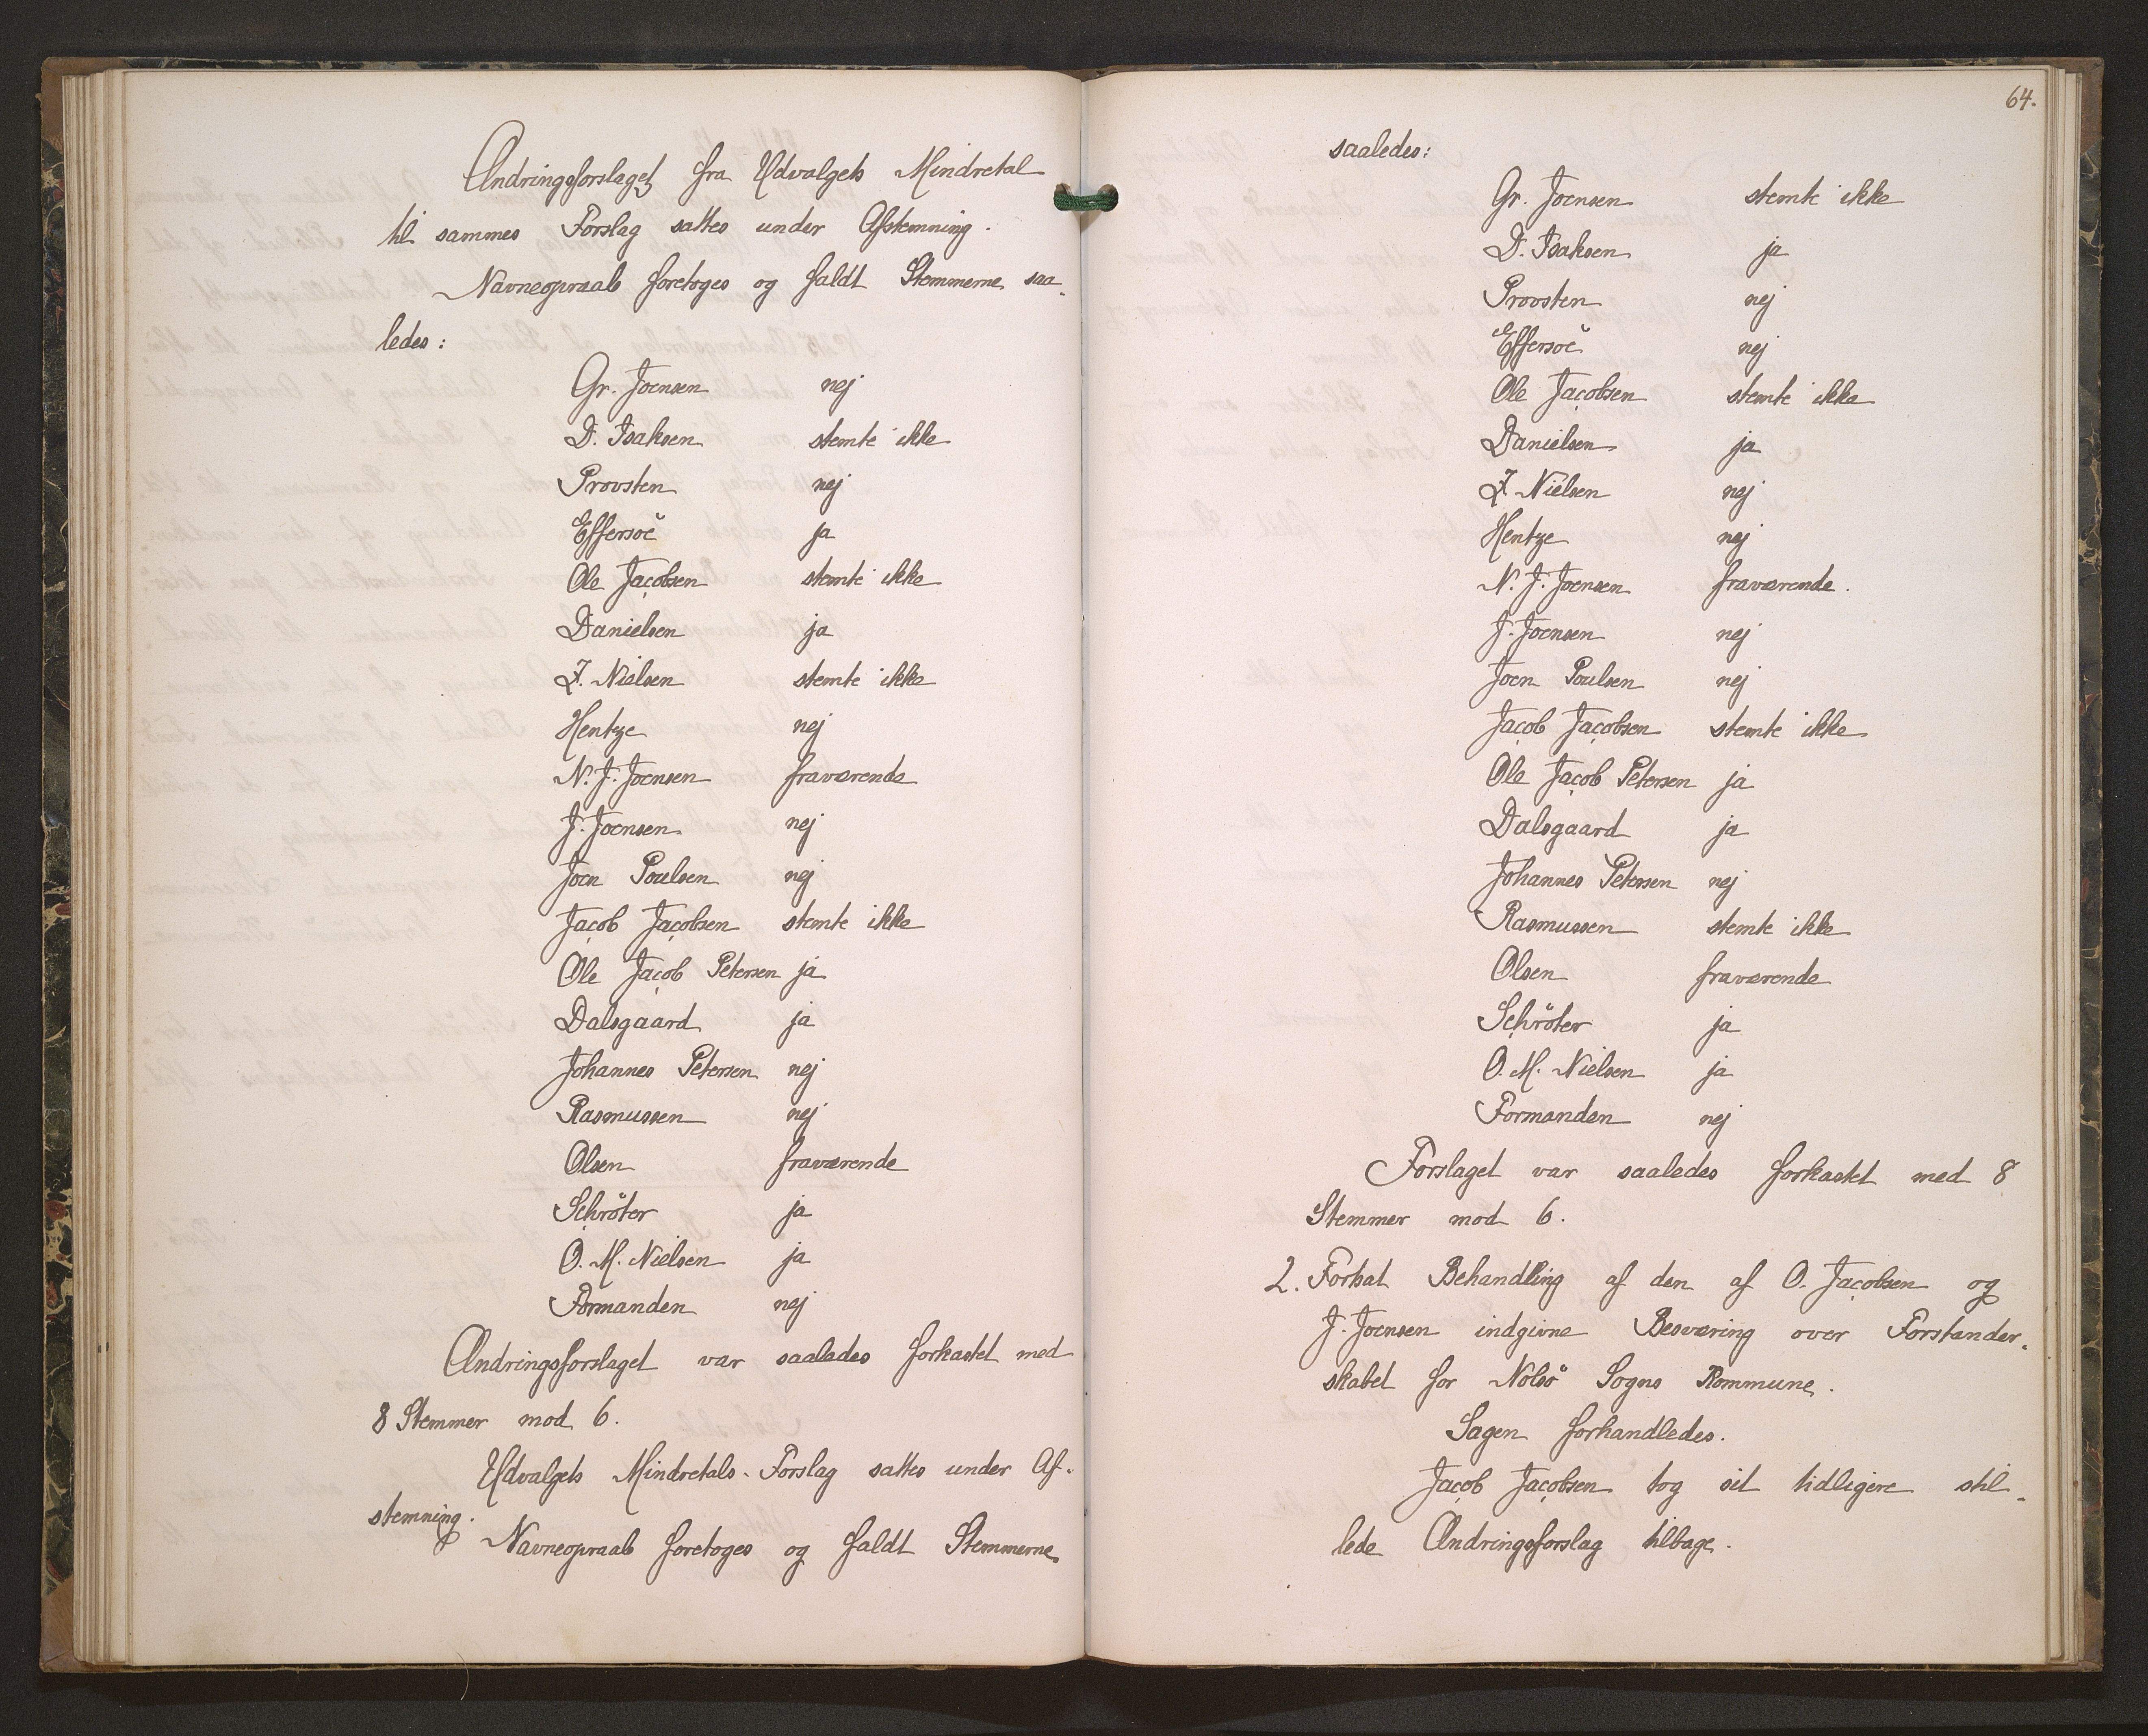 Ændringsforslaget fra Udvalgets Mindretal
til sammes Forslag sattes under Afstemning.
Navneopraab foretoges og faldt Stemmerne saa-
ledes:
Gr. Joensen nej
D. Isaksen stemte ikke
Provsten nej
Effersöe ja
Ole Jacobsen stemte ikke
Danielsen ja
Z. Nielsen stemte ikke
Hentze nej
N. J. Joensen fraværende
J. Joensen nej
Joen Poulsen nej
Jacob Jacobsen stemte ikke
Ole Jacob Petersen ja
Dalsgaard ja
Johannes Petersen nej
Rasmussen nej
Olsen fraværende
Schröter ja
O. M. Nielsen ja
Formanden nej
Ændringsforslaget var saaledes forkastet med
8 Stemmer mod 6.
Udvalgets Mindretals-Forslag sattes under Af-
stemning.
Navneopraab foretoges og faldt Stemmerne
64.
saaledes:
Gr. Joensen stemte ikke
D. Isaksen ja
Provsten nej
Effersöe nej
Ole Jacobsen stemte ikke
Danielsen ja
Z. Nielsen nej
Hentze nej
N. J. Joensen fraværende.
J. Joensen nej
Joen Poulsen nej
Jacob Jacobsen stemte ikke
Ole Jacob Petersen ja
Dalsgaard ja
Johannes Petersen nej
Rasmussen stemte ikke
Olsen fraværende
Schröter ja
O. M. Nielsen ja
Formanden nej
Forslaget var saaledes forkastet med 8
Stemmer mod 6.
2. Fortsat Behandling af den af O. Jacobsen og
J. Joensen indgivne Besværing over Forstander-
skabet for Nolsö Sogns Kommune.
Sagen forhandledes.
Jacob Jacobsen tog sit tidligere stil-
lede Ændringsforslag tilbage.